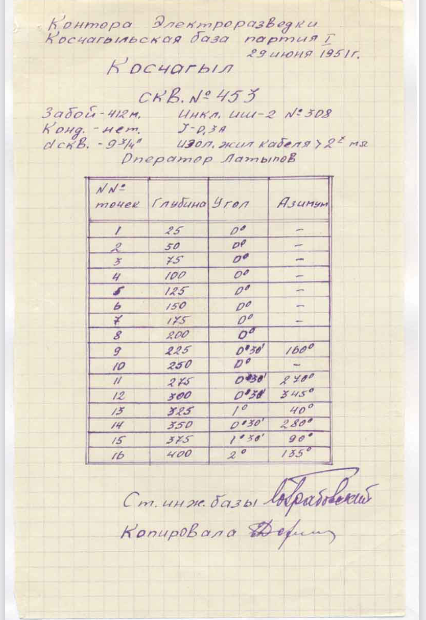 Контора Электроразведки
Косчагыльская база партия I
29 июня 1951г.
Косчагыл
скв. № 453
Забой-412м. Инкл. ИШ-2 № 308
Конд. - нет. J-0,3А
d скв. - 9 3/4" изол. жил кабеля > 2 мя
Оператор Латыпов
N№ точек Глубина Угол Азимут
1 25 0° -
2 50 0° -
3 75 0° -
4 100 0° -
5 125 0° -
6 150 0° -
7 175 0° -
8 200 0°
9 225 0°30' 160°
10 250 0° -
11 275 0°30' 270°
12 300 0°30' 345°
13 325 1° 40°
14 350 0°30' 280°
15 375 1°30' 90°
16 400 2° 135°
Ст. инж. базы
Копировала